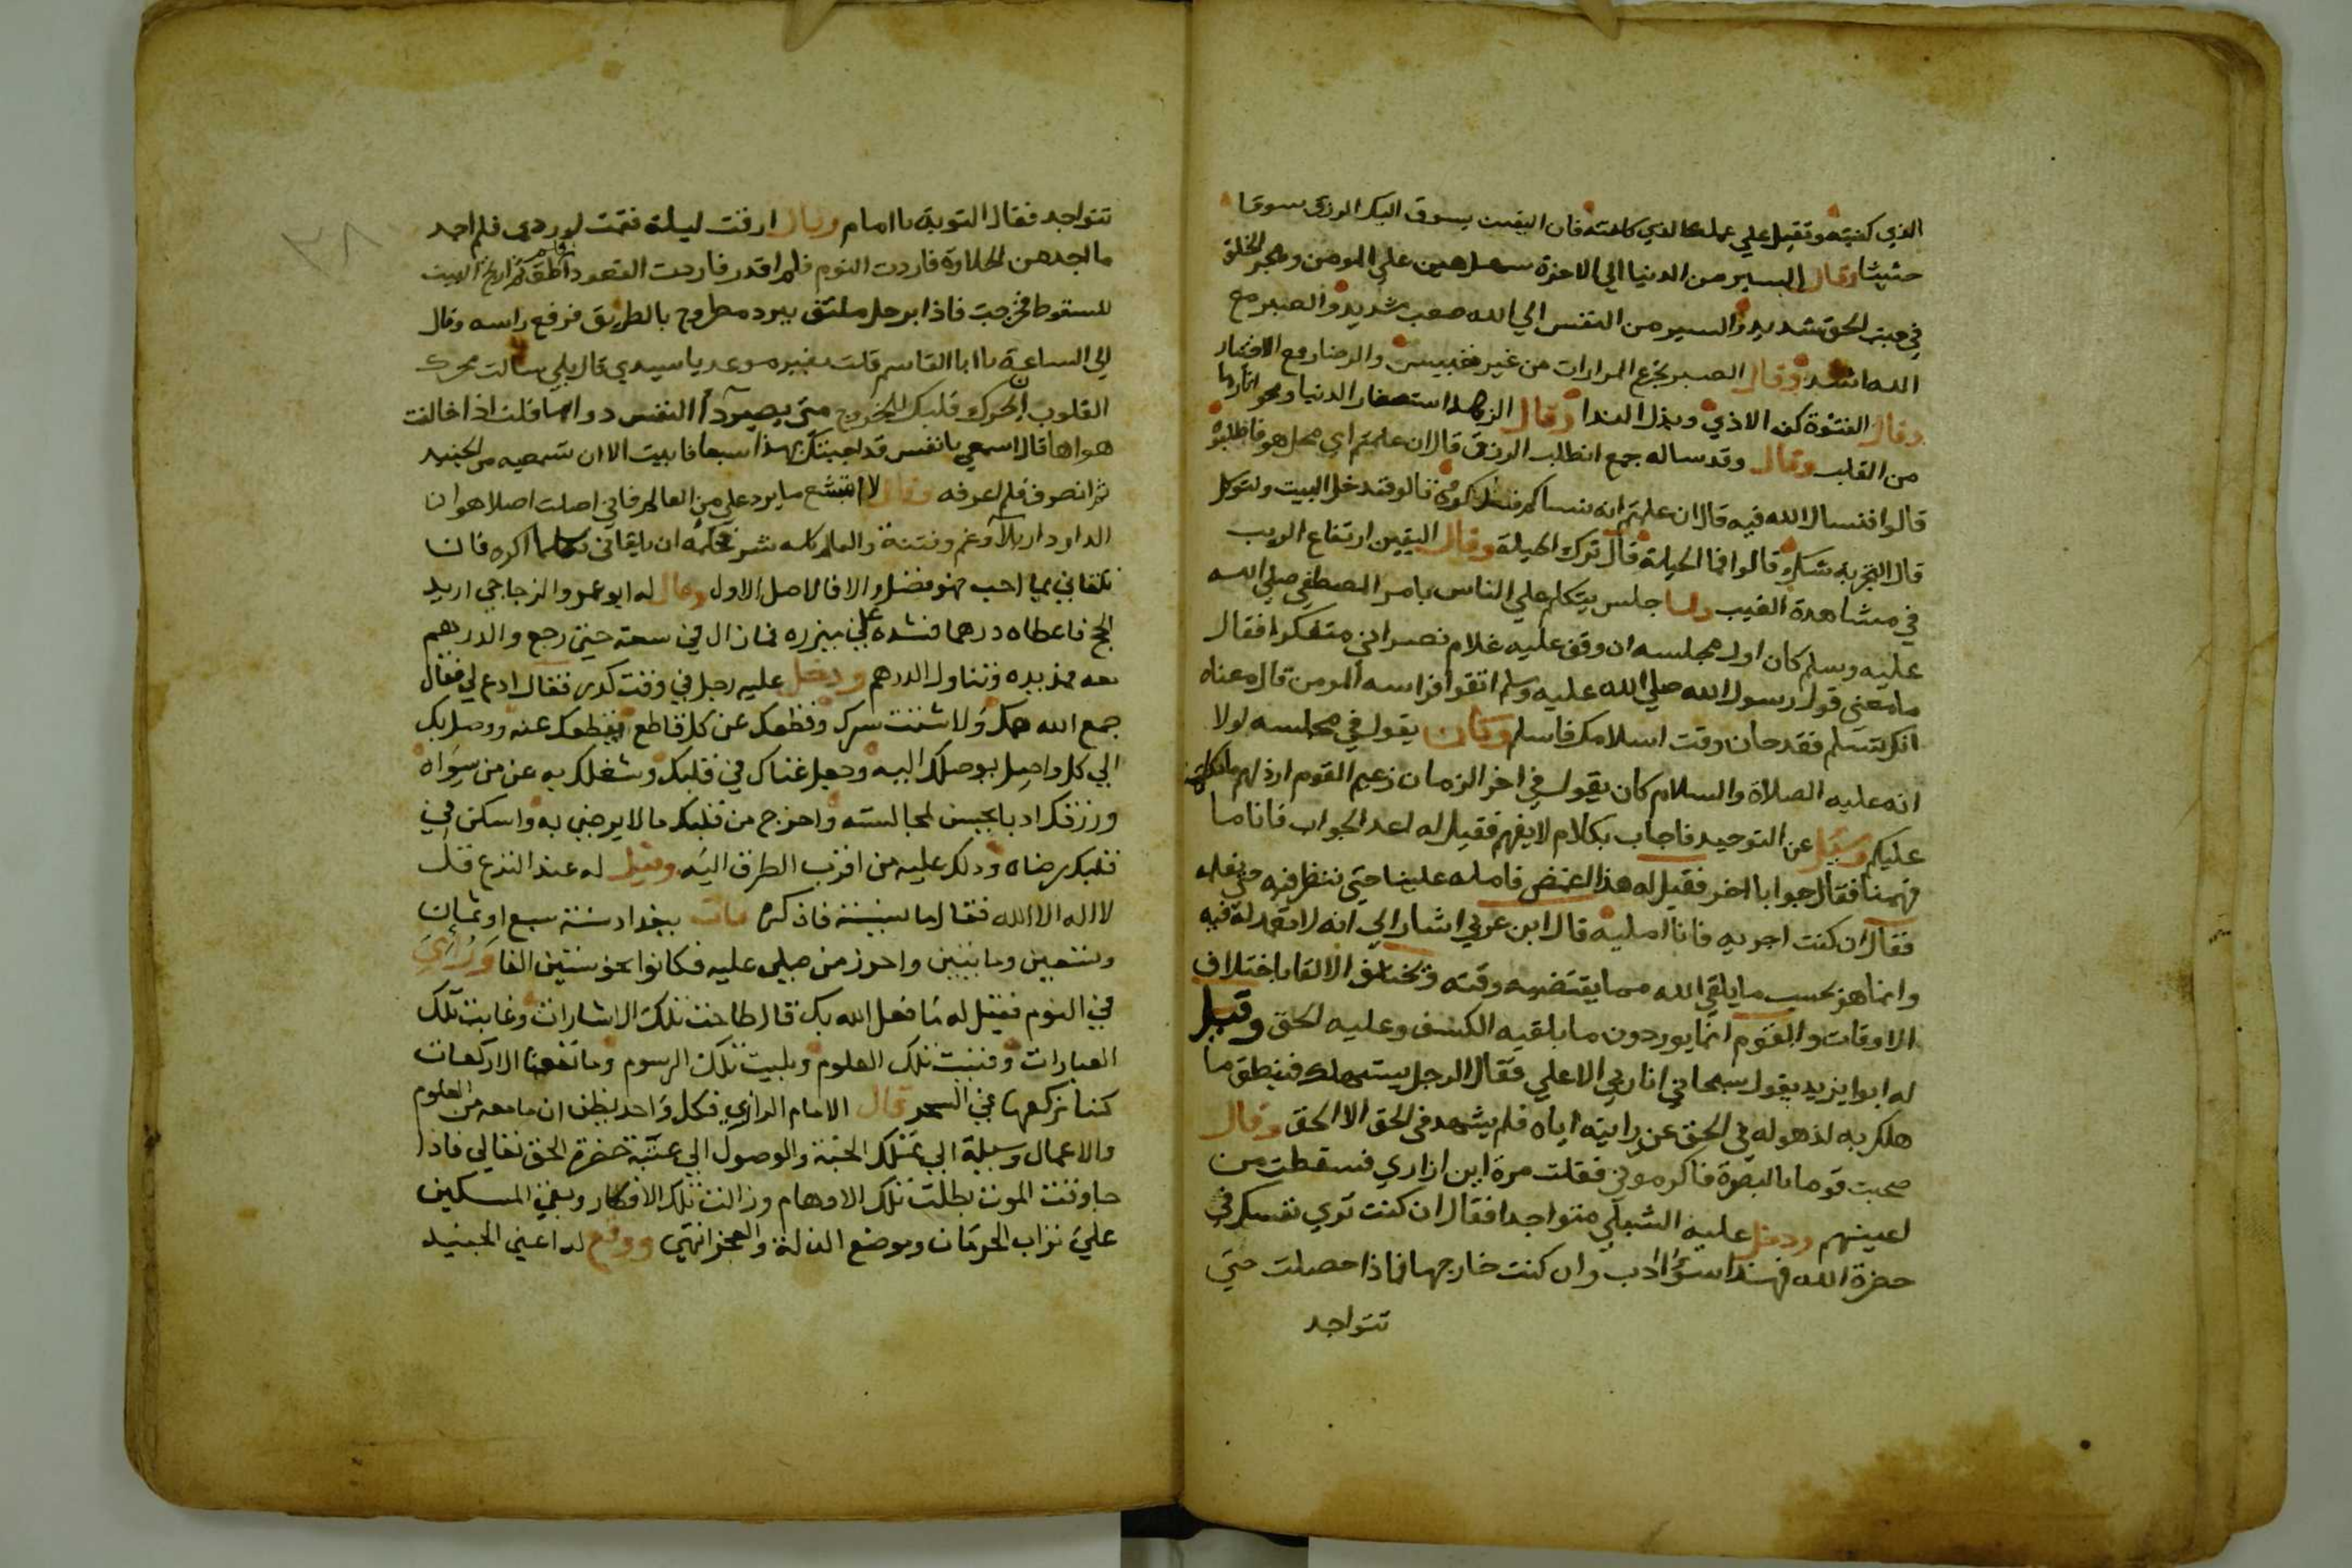 الذي كفيته وتقبل علي عملك الذي كلفته فان اليقين يسوق اليك الرزق سوقا
حثيثا وقال السير من الدنيا الي الاخرة سهل هين علي المومن وهجر الخلق
في جنب الحق شديد والسير من النفس الي الله صعب شديد والصبر مع
الله اشد وقال الصبر تجرع المرارات من غير تعبيس والرضا رفع الاختيار
وقال الفتوة كف الاذي وبذل الندا وقال الزهد استصغار الدنيا ومحو اثارها
من القلب وقال وقد ساله جمع انطلب الرزق قال ان علمتم اي محل هو فاطلبوه
قالوا فنسال الله فيه قال ان علمتم انه ينساكم فذكروه قالوا فندخل البيت ونتوكل
قال التجربة شك قالوا فما الحيلة قال ترك الحيلة وقال اليقين ارتفاع الريب
في مشاهدة الغيب ولما جلس يتكلم علي الناس بامر المصطفي صلي الله
عليه وسلم كان اول مجلسه ان وقف عليه غلام نصراني متنكرا فقال
ما معني قول رسول الله صلي الله عليه وسلم اتقوا فراسه المومن قال معناه
انك تسلم فقد حان وقت اسلامك فاسلم وكان يقول في مجلسه لولا
انه عليه الصلاة والسلام كان يقول في اخر الزمان زعيم القوم ارذلهم ما تكلمت
عليكم وسئل عن التوحيد فاجاب بكلام لا يفهم فقيل له اعد الجواب فانا ما
فهمنا فقال جوابا اخر فقيل له هذا اغمض فامله علينا حتي ننظر فيه
فقال ان كنت اجريه فانا امليه قال ابن عربي اشار الي انه لا تعمد له فيه
وانما هو بحسب ما يلقي الله مما يقتضيه وقته وتختلف الالقا باختلاف
الاوقات والقوم انما يوردون ما يلقيه الكشف وعليه الحق وقيل
له ابو يزيد يقول سبحاني انا ربي الاعلي فقال الرجل يستهلك فينطق ما
هلك به لذهوله في الحق عن رايته اياه فلم يشهد في الحق الا الحق وقال
صحبت قوما بالبصرة فاكرموني فقلت مرة اين ازاري فسقطت من
اعينهم ودخل عليه الشبلي متواجدا فقال ان كنت تري نفسك في
حضرة الله فهذا سوء ادب وان كنت خارجها فماذا حصلت حتي
تتواجد
٣٨
تتواجد فقال التوبة يا امام وقال ارقت ليلة فقمت لوردي فلم اجد
ما اجد من الحلاوة فاردت النوم فلم اقدر فاردت القعود فلم اطق
للسقوط فخرجت فاذا برجل ملتف ببرد مطروح بالطريق فرفع راسه وقال
الي الساعة يا ابا القاسم قلت بغير موعد يا سيدي قال بلي سالت محرك
القلوب ان يحرك قلبك للخروج متي يصير داء النفس دواها قلت اذا خالفت
هواها قال اسمعي يا نفس قد اجبتك بهذا سبعا فابيت الا ان تسمعيه من الجنيد
ثم انصرف فلم اعرفه وقال لا استبشع ما يرد علي من العالم فاني اصلت اصلا هو ان
الدار دار بلاء وغم وفتنة والعالم كله شر فحكمه ان يلقاني بكلما اكره فان
تلقاني بما احب فهو فضل والا فالاصل الاول وقال له ابو عمرو الزجاجي اريد
الحج فاعطاه درهما فشده علي مئزره فما زال في سعة حتي رجع والدرهم
معه فمد يده وتناول الدرهم ودخل عليه رجل في وقت كدر فقال ادع لي فقال
جمع الله همك ولا شتت سرك وقطعك عن كل قاطع يقطعك عنه ووصل بك
الي كل واصل يوصلك اليه وجعل غناك في قلبك وشغلك به عن من سواه
ورزقك ادبا يحسن لمجالسته واخرج من قلبك ما لا يرضي به واسكن في
قلبك رضاه ودلك عليه من اقرب الطرق اليه وقيل له عند النزع قل
لا اله الا الله فقال ما نسيته فاذكره مات ببغداد سنة سبع او ثمان
وتسعين وماتين واحرز من صلي عليه فكانوا نحو ستين الفا ورائي
في النوم فقيل له ما فعل الله بك قال طاحت تلك الاشارات وغابت تلك
العبارات وفنيت تلك العلوم وبليت تلك الرسوم وما نفعنا الا ركعات
كنا نركعها في السحر قال الامام الرازي فكل واحد يظن ان ما معه من العلوم
والاعمال وسيلة الي تملك الجنة والوصول الي عتبة حضرة الحق تعالي فاذا
جا وقت الموت بطلت تلك الاوهام وزالت تلك الافكار وبقي المسكين
علي تراب الحرمان وموضع الذلة والعجز انتهي ووقع له اعني الجنيد